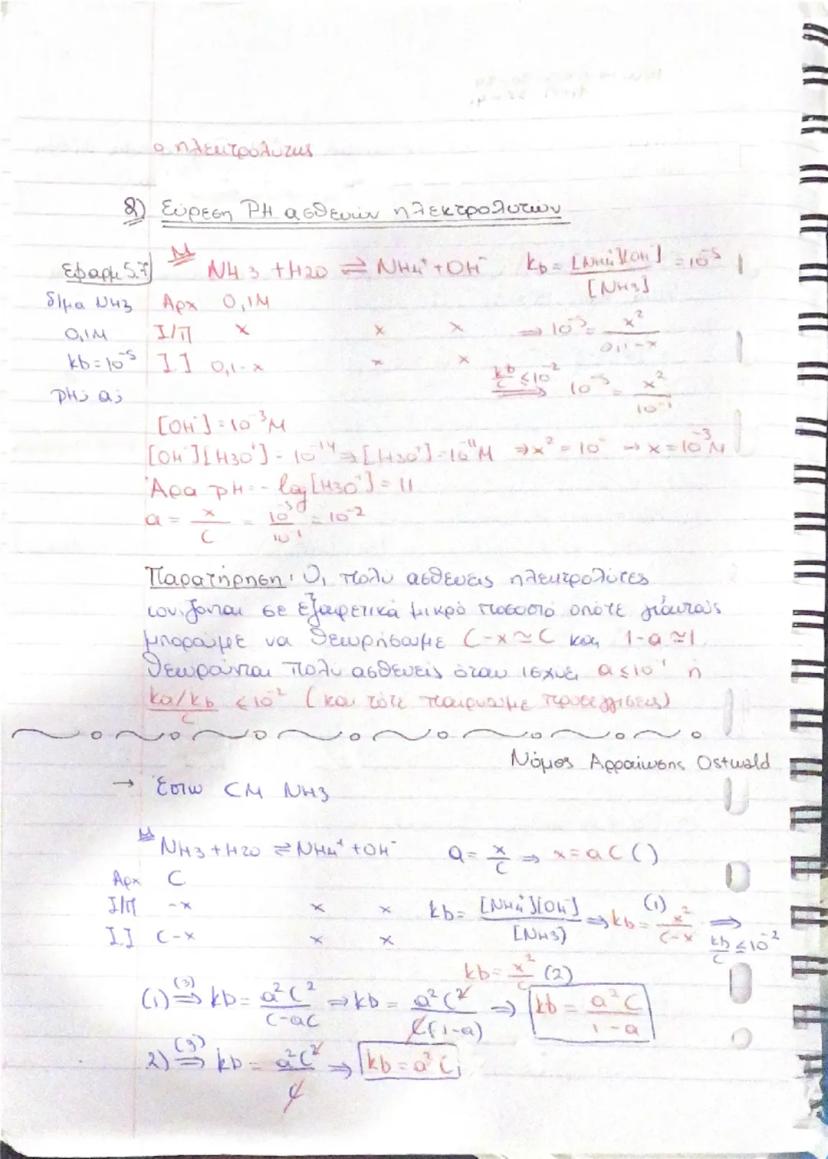 ο ηλεκτρολύτης
8) Εύρεση PH ασθενών ηλεκτρολυτών
Εφαρμ 5.7
M NH3 + H2O ⇌ NH4⁺ + OH⁻ kb = [NH4⁺][OH⁻] / [NH3] = 10⁻⁵
δ/μα NH3 Αρχ 0,1M
0,1M Ι/Π x x x ⇒ 10⁻⁵ = x² / 0,1-x
kb = 10⁻⁵ Ι.Ι 0,1-x x x
pH; α; kb/C ≤ 10⁻² ⟹ 10⁻⁵ = x² / 10⁻¹
[OH⁻] = 10⁻³ M
[OH⁻][H3O⁺] = 10⁻¹⁴ ⇒ [H3O⁺] = 10⁻¹¹ M ⇒ x² = 10⁻ → x = 10⁻³ M
Άρα pH = -log[H3O⁺] = 11
α = x/C = 10⁻³/10⁻¹ = 10⁻²
Παρατήρηση: Οι πολύ ασθενείς ηλεκτρολύτες
ιονίζονται σε εξαιρετικά μικρό ποσοστό οπότε γι'αυτούς
μπορούμε να θεωρήσουμε C-x ≃ C και 1-α ≃ 1
Θεωρούνται πολύ ασθενείς όταν ισχύει α ≤ 10⁻¹ ή
ka/kb / C ≤ 10⁻² (και τότε παίρνουμε προσεγγίσεις)
Νόμος Αρραίωσης Ostwald
→ Έστω CM NH3
M NH3 + H2O ⇌ NH4⁺ + OH⁻ α = x/C ⇒ x = αC ( )
Αρχ C
Ι/Π -x x x kb = [NH4⁺][OH⁻] / [NH3] ⇒ kb (1) = x² / C-x ⟹
Ι.Ι C-x x x kb/C ≤ 10⁻²
kb = x²/C (2)
(1) (3)⟹ kb = α²C² / C-αC ⇒ kb = α²C² / C(1-α) ⇒ kb = α²C / 1-α
2) (3)⟹ kb = α²C² / C ⇒ kb = α²C